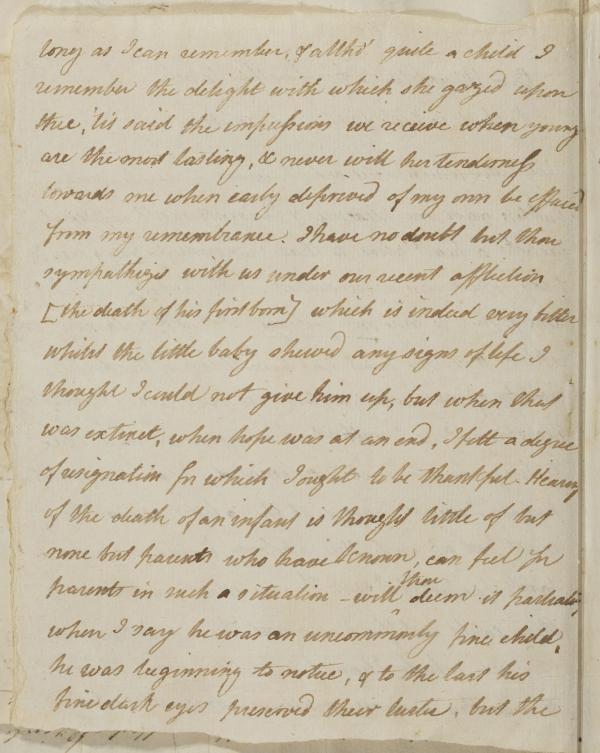 long as I can remember, & altho' quite a child I
remember the delight with which she gazed upon
thee, 'tis said the impressions we receive when young
are the most lasting, & never will her tenderness
towards me when early deprived of my own be effaced
from my remembrance. I have no doubt but thou
sympathizes with us under our recent affliction
[the death of his first born] which is indeed very bitter
whilst the little baby shewed any signs of life I
thought I could not give him up, but when that
was extinct, when hope was at an end, I felt a degree
of resignation for which I ought to be thankful - Hearing
of the death of an infant is thought little of but
none but parents who have known, can feel for
parents in such a situation - will thou deem it partiality
when I say he was an uncommonly fine child,
he was beginning to notice, & to the last his
fine dark eyes preserved their lustre, but the